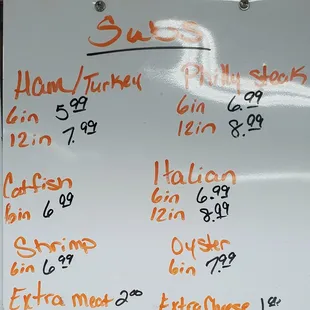 Subs
Ham/Turkey
6in 5.99
12in 7.99
Philly steak
6in 6.99
12in 8.99
Catfish
6in 6.99
Italian
6in 6.99
12in 8.99
Shrimp
6in 6.99
Oyster
6in 7.99
Extra meat 2.00
Extra Cheese